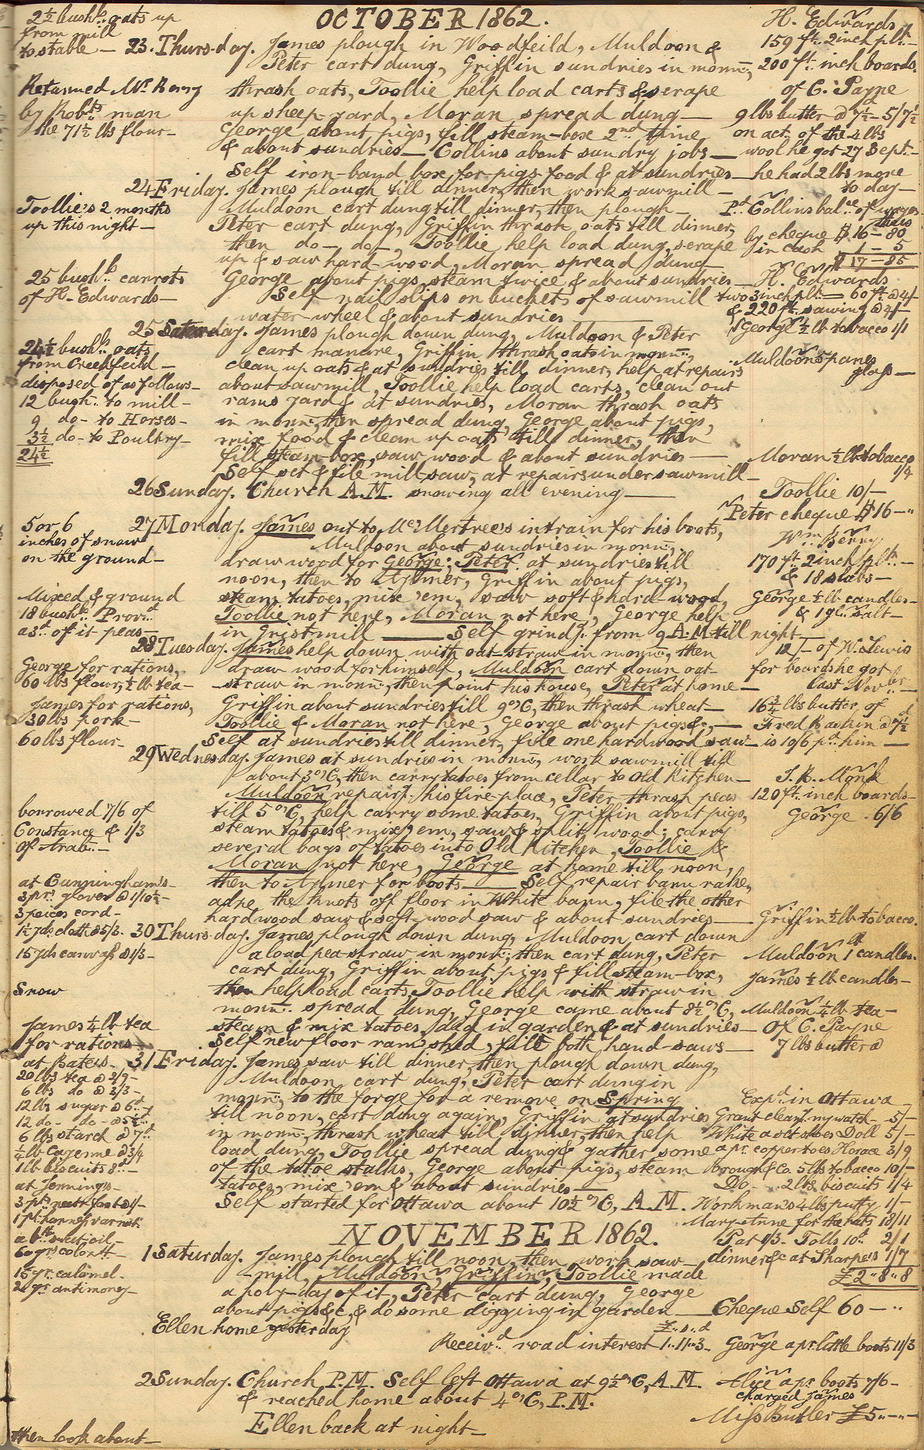 OCTOBER 1862.
2½ bushls oats up
from mill
to stable —
23. Thurs-day. James plough in Woodfeild, Muldoon &
Peter cart dung, Griffin sundries in mornng,
thrash oats, Toollie help load carts & scrape
up sheep yard, Moran spread dung —
George about pigs, fill steam-box 2nd time
& about sundries — Collins about sundry jobs —
Self iron-band box for pigs food & at sundries —
Returned Mr Berry
by Robts man
the 71½ lbs flour —
H. Edwards
159 ft. 2 inch plk —
200 ft. inch boards
of C. Payne
9 lbs butter @ 7½ — 5/7½
on act. of the 4 lbs
wool he got 27 Sept. —
he had 2 lbs more
to day —
24 Friday. James plough till dinner, then work sawmill —
Muldoon cart dung till dinner, then plough —
Peter cart dung, Griffin thrash oats till dinner,
then do — do —, Toollie help load dung, scrape
up & saw hard-wood, Moran spread dung —
George about pigs, steam twice & about sundries —
Self nail slips on buckets of sawmill
water-wheel & about sundries —
Toollie's 2 months
up this night —
25 bushls carrots
of H. Edwards —
Pd Collins balce of wages
by cheque $16 — 80
in cash 1 — 5
$17 — 85
H. Edwards
two 3 inch plk — 60 ft @ 4/-
& 220 ft. sawing @ 2/- —
George ½ lb tobacco 1/1
25 Saturday. James plough down dung, Muldoon & Peter
cart manure, Griffin thrash oats in mornng,
clean up oats & at sundries till dinner, help at repairs
about sawmill, Toollie help load carts, clean out
rams yard & at sundries, Moran thrash oats
in mornng, then spread dung, George about pigs,
mix food & clean up oats till dinner, then
fill steam-box, saw wood & about sundries —
Self set & file mill-saw, at repairs under sawmill —
24½ bushls oats
from Creekfeild —
disposed of as follows —
12 bush: to mill —
9 do — to Horses —
3½ do — to Poultry —
24½
Muldoon 5 panes
glass —
Moran ½ lb tobacco
26 Sunday. Church A.M. snowing all evening —
Toollie 10/-
Peter cheque $16 —
27 Monday. James out to McMertree's in train for his boots,
Muldoon about sundries in mornng,
draw wood for George; Peter at sundries till
noon, then to Aylmer, Griffin about pigs,
steam tatoes, mix 'em, saw soft & hard-wood,
Toollie not here, Moran not here, George help
in Gristmill — Self grindg. from 9 A.M. till night —
5 or 6
inches of snow
on the ground —
Mixed & ground
18 bushls Provd
as. of it peas —
Wm. Berry
170 ft 2 inch plk —
& 18 slabs —
George ½ lb candles —
& 1 qt. salt —
28 Tuesday. James help down with oat-straw in mornng, then
draw wood for himself, Muldoon cart down oat
straw in mornng, then point his house, Peter at home —
Griffin about sundries till 9 o'C, then thrash wheat —
Toollie & Moran not here, George about pigs &c —
Self at sundries till dinner, file one hardwood saw —
George for rations,
60 lbs flour, ½ lb tea —
James for rations,
30 lbs pork —
60 lbs flour —
12/- of W. Lewis
for boards he got
last Novber —
16½ lbs butter of
Fred Raskin @ 7½
is 10/6 pd him —
29 Wednesday. James at sundries in mornng, work sawmill till
about 3 o'C, then carry tatoes from cellar to Old Kitchen —
Muldoon repairg. his fire-place, Peter thrash peas
till 3 o'C, help carry some tatoes, Griffin about pigs,
steam tatoes & mix 'em, saw & split wood; carry
several bags of tatoes into Old Kitchen, Toollie &
Moran not here, George at home till noon,
then to Aylmer for boots — Self repair barn rake,
adze the knots off floor in White barn, file the other
hardwood saw & soft-wood saw & about sundries —
borrowed 7/6 of
Constance & 1/3
of Arab. —
at Cunningham's —
3 prs. gloves @ 1/10½ —
3 peices cord —
1½ yds. cloth @ 5/3 —
15 yds canvass @ 1/3 —
J. B. Monk
120 ft. inch boards —
George 6/6
Griffin ½ lb tobacco
30 Thurs-day. James plough down dung, Muldoon cart down
a load pea-straw in mornng, then cart dung, Peter
cart dung, Griffin about pigs & fill steam-box,
then help load carts, Toollie help with straw in
mornng. spread dung, George came about 8½ o'C,
steam & mix tatoes, dig in garden & at sundries —
Self new floor ram shed, file both hand-saws —
Snow
James ¼ lb tea
for rations —
Muldoon 1 lb candles —
James ½ lb candles —
Muldoon ¼ lb tea —
Of C. Payne
7 lbs butter @
31 Friday. James saw till dinner, then plough down dung,
Muldoon cart dung, Peter cart dung in
mornng, to the forge for a remove on Spring
till noon, cart dung again, Griffin at sundries
in mornng, thrash wheat till dinner, then help
load dung, Toollie spread dung & gather some
of the tatoe stalks, George about pigs, steam
tatoes, mix 'em & about sundries —
Self started for Ottawa about 10½ o'C, A.M.
at Bates —
20 lbs tea @ 2/9 —
6 lbs do @ 3/3 —
12 lbs sugar @ 6d —
12 do — do —
6 lbs starch @ 7d
¼ lb Cayenne @ 3/4
1 lb biscuits
at Jennings —
3 pts. neats foot
1 pt. harness varnish
a btl. sweet oil —
60 grs. colont —
15 gr. calomel —
2 grs antimony —
Expd. in Ottawa —
Grant cleang. my watch — 5/-
White a set shoes Doll 5/-
a pr. copper toes Horace 3/9
Brough & Co. 5 lbs tobacco 10/-
Do — 2 lbs biscuits 1/4
Workman's 4 lbs putty 1/-
Mary Anne for the hats 18/11
Pat 1/3. Tolls 10d. 2/1
dinner &c at Sharpe's 1/7
£2 " 8 " 8
NOVEMBER 1862.
1 Saturday. James plough till noon, then work saw-
mill, Muldoon, Griffin, Toollie made
a holy-day of it, Peter cart dung, George
about pigs &c, & do some digging in garden —
Cheque Self 60 —
Ellen home yesterday
£.. s.. d
Receivd. road interest 1.. 11.. 3 —
George a pr. little boots 11/3
2 Sunday. Church P.M. Self left Ottawa at 9½ o'C, A.M.
& reached home about 4 o'C, P.M.
Ellen back at night —
Alice a pr. boots 7/6 —
charged James
Miss Butler £5 —
then look about —